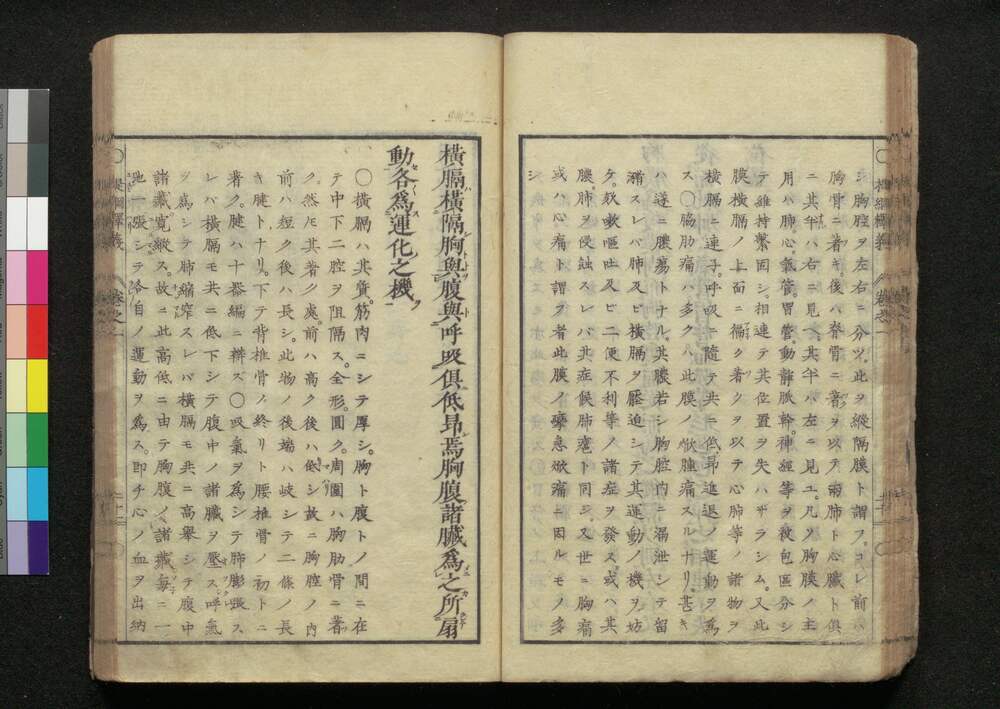 シ胸腔ヲ左右ニ分ツ。此ヲ縱隔膜ト謂フ。コレ前ハ
胸骨ニ著キ。後ハ脊骨ニ著クヲ以テ。兩肺ト心臟ト俱
ニ其半ハ右ニ見ヘ。其半ハ左ニ見エ。凡ソ胸膜ノ主
用ハ肺。心。氣管。胃管。動靜脈幹。神經等ヲ被包區分シ
テ維持繫固シ。相連テ其位置ヲ失ハザラシム。又此
膜橫膈ノ上面ニ徧ク著クヲ以テ心肺等ノ諸物ヲ
橫膈ニ連子。呼吸ニ隨テ共ニ低昂進退ノ運動ヲ為
ス〇脇肋痛ハ多クハ此膜ノ焮腫痛スルナリ。甚キ
ハ遂ニ膿瘍トナル。其膿若シ胸腔内ニ漏泄シテ留
滯スレバ肺及ビ橫膈ヲ壓迫シテ其運動ノ機ヲ妨
ケ。欬嗽嘔吐及ビ二便不利等ノ諸症ヲ發ス。或ハ其
膿。肺ヲ侵蝕スレバ其症候肺瘡ト同ジ。又世ニ胸痛
或ハ心痛ト謂フ者此膜ノ瘮急焮痛ニ因ルモノ多
シ
橫膈橫隔胸與腹與呼吸俱低昂焉胸腹諸臟為之所扇
動各為運化之機
〇橫膈ハ其質筋肉ニシテ厚シ。胸ト腹トノ間ニ在
テ中下二腔ヲ阻隔ス。全形圓ク。周圍ハ胸肋骨ニ著
ク。然圧其著ク處。前ハ高ク後ハ低シ。故ニ胸腔ノ内
前ハ短ク後ハ長シ。此物ノ後端ハ岐シテ二條ノ長
キ腱トナリ。下テ背椎骨ノ終リト腰椎骨ノ初トニ
著ク。腱ハ十器編ニ辨ズ〇吸氣ヲ為シテ肺膨脹ス
レバ橫膈モ共ニ低下シテ腹中ノ諸臟ヲ壓ス。呼氣
ヲ為シテ肺縮窄スレバ橫膈モ共ニ高舉シテ腹中
諸臟寬縱ス。故ニ此高低ニ由テ胸腹ノ諸臟每ニ一
弛一張シテ各自ノ運動ヲ為ス。即チ心ノ血ヲ出納